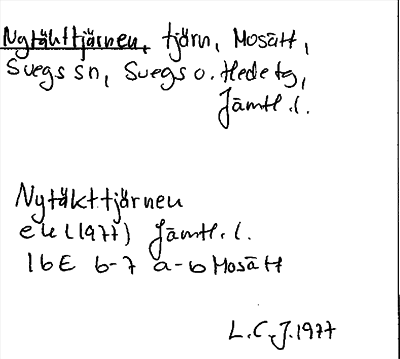 Nytäkttjärnen, tjärn, Mosätt,
Svegs sn, Svegs o. Hede tg,
Jämtl. l.
Nytäkttjärnen
ek (1977) Jämtl. l.
16E 6-7 a-b Mosätt
L.C.J. 1977